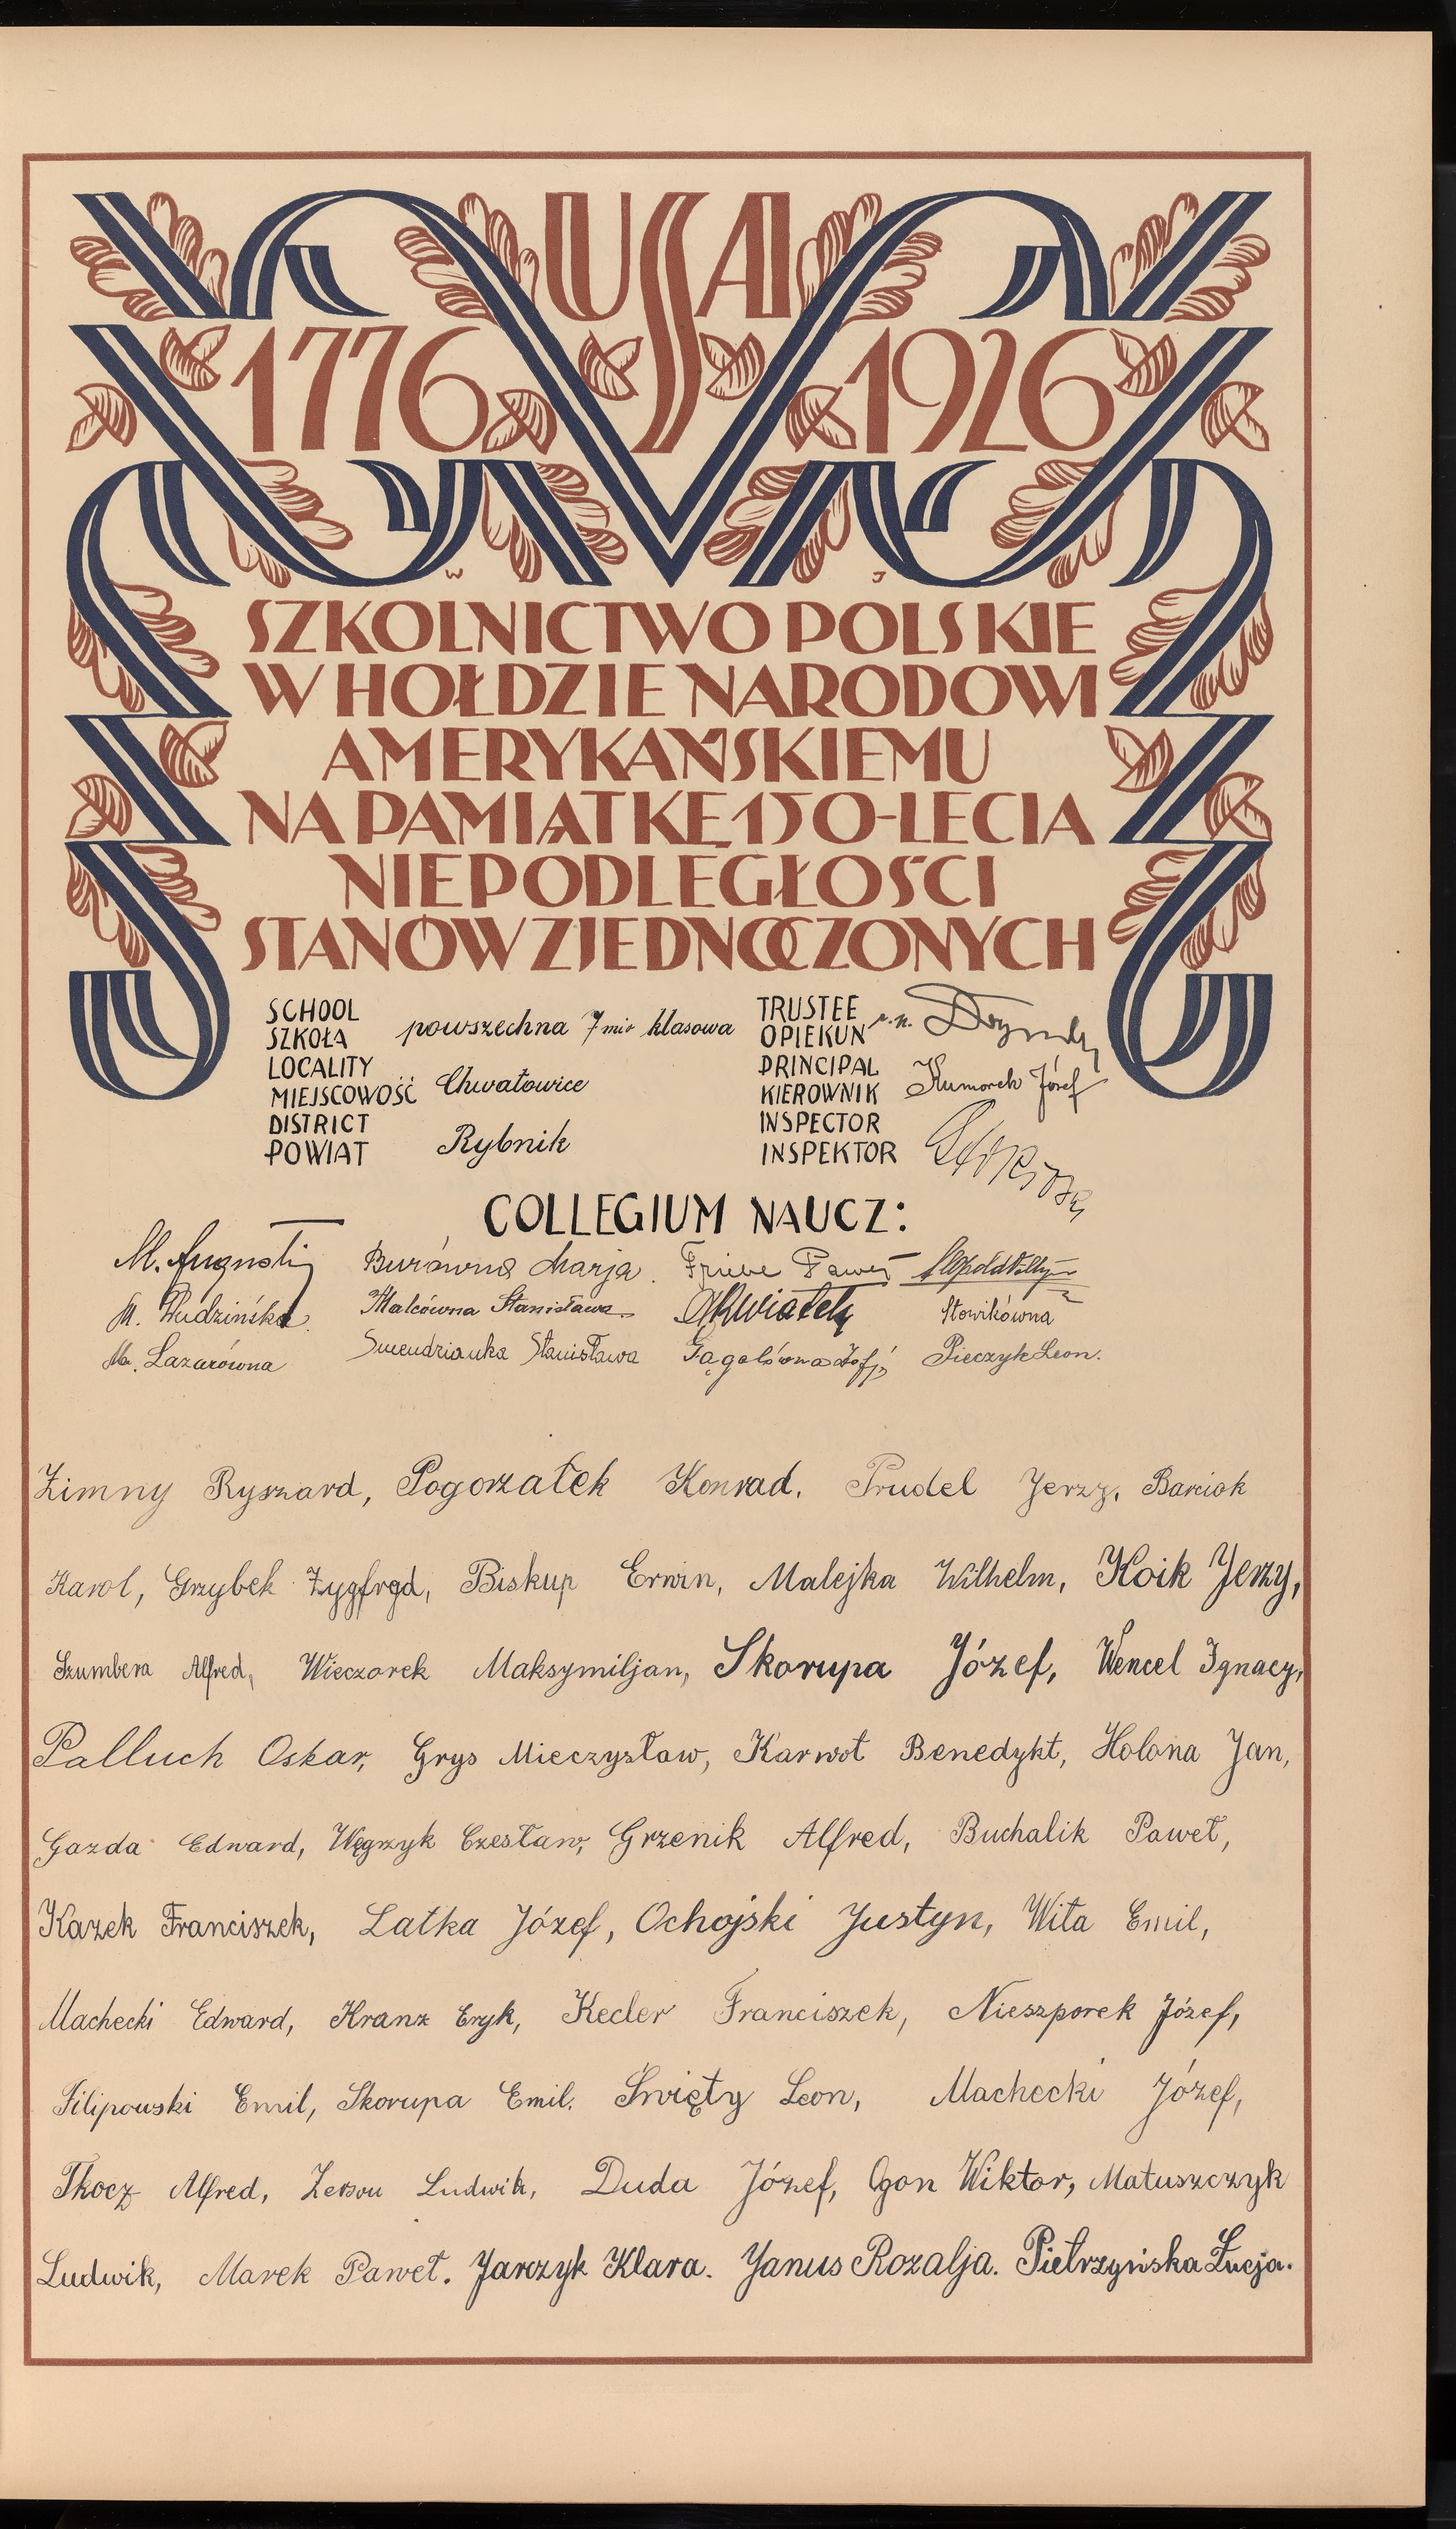 USA
1776 1926
W J
SZKOLNICTWO POLSKIE
W HOŁDZIE NARODOWI
AMERYKAŃSKIEMU
NA PAMIĄTKĘ 150-LECIA
NIEPODLEGŁOŚCI
STANÓW ZJEDNOCZONYCH
SCHOOL
SZKOŁA powszechna 7mio klasowa
LOCALITY
MIEJSCOWOŚĆ Chwałowice
DISTRICT
POWIAT Rybnik
TRUSTEE
OPIEKUN
PRINCIPAL
KIEROWNIK Kumorek Józef
INSPECTOR
INSPEKTOR
COLLEGIUM NAUCZ:
M. Augusti Burówna Marja. Friebe Paweł
M. Wudzińska. Malcówna Stanisława Kwiatek Słowikówna
M. Lazarówna Smendzianka Stanisława Zofja Pieczyk Leon.
Zimny Ryszard, Pogorzałek Konrad. Prudel Jerzy, Barciok
Karol, Grzybek Zygfryd, Biskup Erwin, Malejka Wilhelm, Koik Jerzy,
Szumbera Alfred, Wieczorek Maksymiljan, Skorupa Józef, Wencel Ignacy,
Palluch Oskar, Grys Mieczysław, Karwot Benedykt, Holona Jan,
Gazda Edward, Węgrzyk Czesław, Grzenik Alfred, Buchalik Paweł,
Kazek Franciszek, Latka Józef, Ochojski Justyn, Wita Emil,
Machecki Edward, Kranz Eryk, Kecler Franciszek, Nieszporek Józef,
Filipowski Emil, Skorupa Emil. Święty Leon, Machecki Józef,
Tkocz Alfred, Ludwik, Duda Józef, Ogon Wiktor, Matuszczyk
Ludwik, Marek Paweł. Jarczyk Klara. Janus Rozalja. Pietrzyńska Łucja.